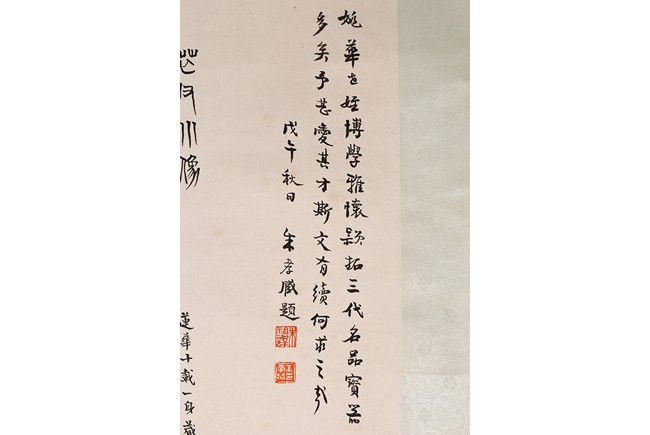 姚華世姪博學雅懷拓三代名品寶器
多矣予甚愛其才斯文有續何求之哉
戊午秋日 朱孝臧題
茫父小像
蓮華十載一身藏